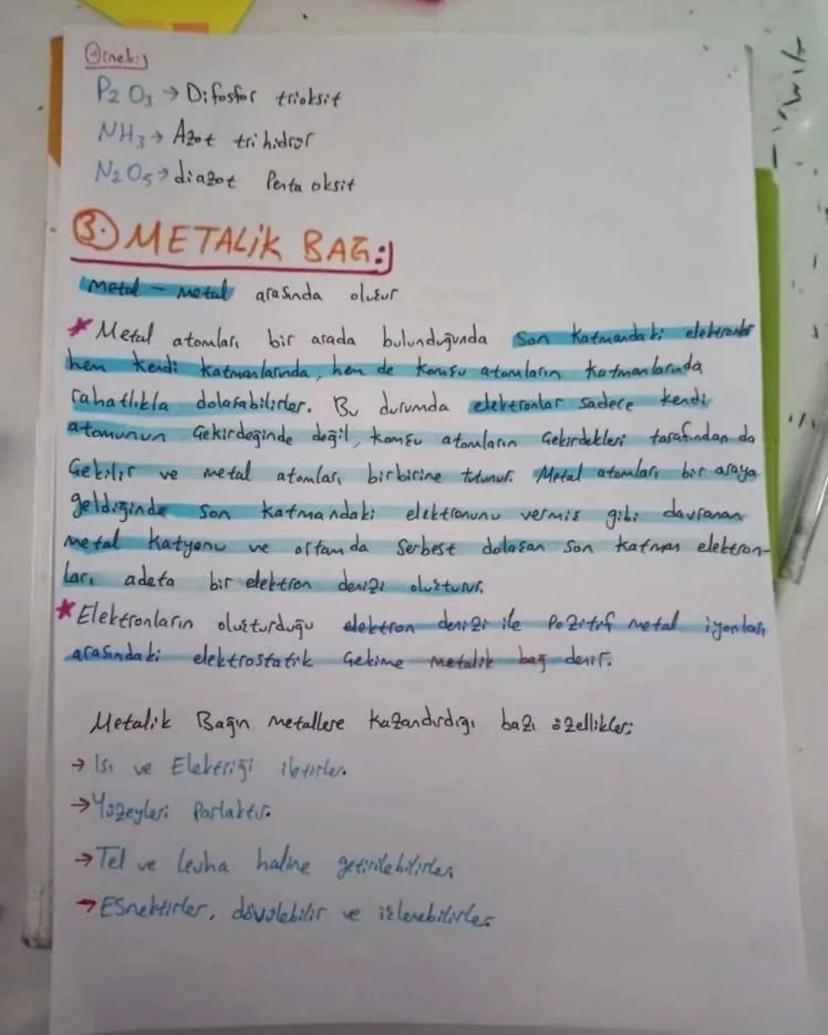 Örnek:
P2 O3 → Difosfor trioksit
NH3 → Azot tri hidrür
N2O5 → diazot Penta oksit
3. METALİK BAĞ:
Metal - Metal arasında oluşur
* Metal atomları bir arada bulunduğunda son katmandaki elektronlar
hem kendi katmanlarında, hem de komşu atomların katmanlarında
rahatlıkla dolaşabilirler. Bu durumda elektronlar sadece kendi
atomunun çekirdeğinde değil, komşu atomların çekirdekleri tarafından da
çekilir ve metal atomları birbirine tutunur. Metal atomları bir araya
geldiğinde son katmandaki elektronunu vermiş gibi davranan
metal katyonu ve ortamda serbest dolaşan son katman elektron-
ları adeta bir elektron denizi oluşturur.
* Elektronların oluşturduğu elektron denizi ile pozitif metal iyonları
arasındaki elektrostatik çekime metalik bağ denir.
Metalik Bağın metallere kazandırdığı bazı özellikler;
→ Isı ve Elektriği iletirler.
→ Yüzeyleri Parlaktır.
→ Tel ve levha haline getirilebilirler.
→ Esnektirler, dövülebilir ve işlenebilirler.